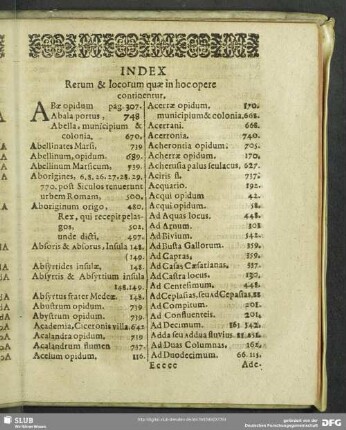 INDEX
Rerum & locorum quæ in hoc opere
continentur.
ABæ opidum pag. 307.
Abala portus, 748
Abella, municipium &
colonia, 670.
Abellinates Marsi. 719
Abellinum, opidum. 689.
Abellinum Marsicum. 539.
Aborigines, 6.8.26.27.28.29.
770. post Siculos tenuerunt
urbem Romam, 500,
Aboriginum origo, 480,
Rex, qui recepit pelas-
gos. 502,
unde dicti, 497.
Absoris & Absorus, Insula 148.
(149.
Absyrtides insulæ, 148
Absyrtis & Absyrtium insula
148.149.
Absyrtus frater Medeæ. 148.
Abustrum opidum. 739.
Abystrum opidum. 739.
Academia, Ciceronis villa. 642
Acalandra opidum. 719
Acalandrum flumen 717.
Accium opidum, 116.
Acerræ opidum, 170.
municipium & colonia. 668.
Acerrani. 668.
Acerronia. 740.
Acherontia opidum. 705.
Acherræ opidum. 170,
Acherusia palus seu lacus, 627.
Aciris fl. 737.
Acquario. 592.
Acqui opidum 42.
Acqui opidum. 58.
Ad Aquas locus. 448.
Ad Agnum. 308
Ad Bivium. 542.
Ad Busta Gallorum. 359.
Ad Capras. 359.
Ad Casas Cæsarianas, 557.
Ad Castra locus. 130.
Ad Centesimum. 448.
Ad Cepasias, seu Ad Cepasias, 88
Ad Compitum. 208.
Ad Confluenteis. 201.
Ad Decimum. 161 542.
Adda seu Addua fluvius
Ad Duas Columnas, 162.
Ad Duodecimum. 66.115.
Eeeee Ade-
SLUB
Wir führen Wissen.
gefördert von der
Deutschen Forschungsgemeinschaft
DFG